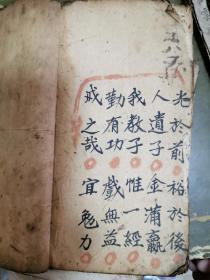 光於前裕於後
人遺子金滿籯
我教子惟一經
勤有功戲無益
戒之哉宜勉力